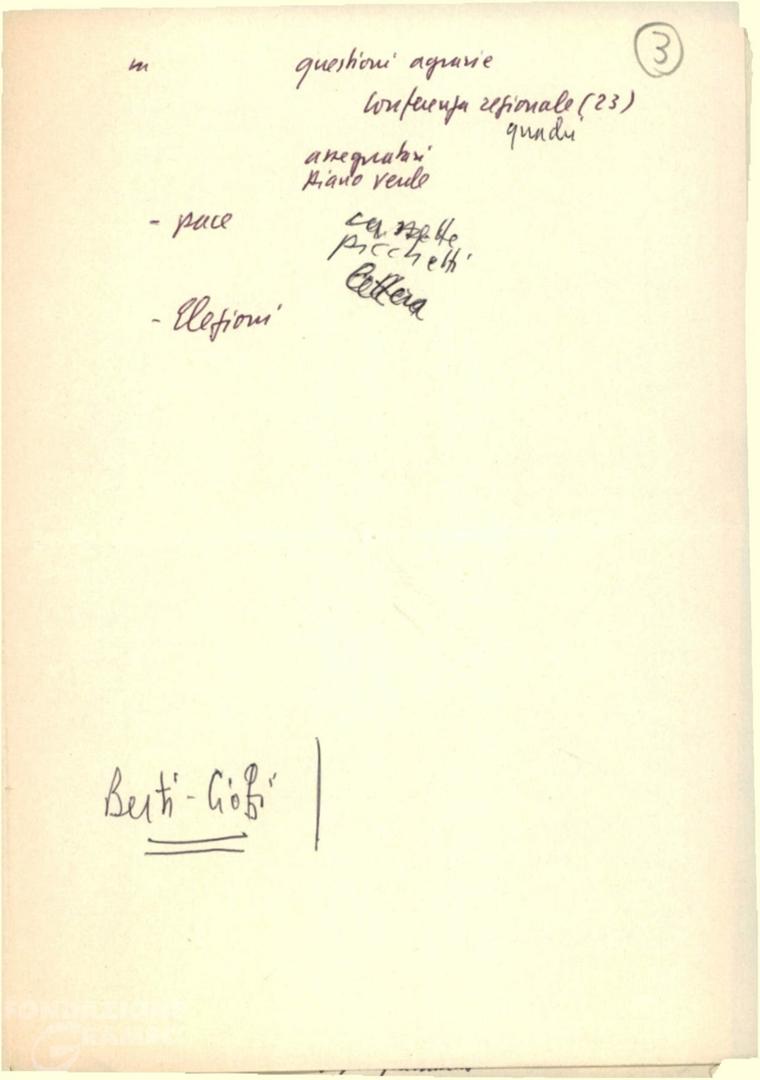 3
m questioni agrarie
Conferenza regionale (23)
quadri
assegnatari
piano verde
- pace
picchetti
lettera
- Elezioni
Berti -
FONDAZIONE
GRAMSCI